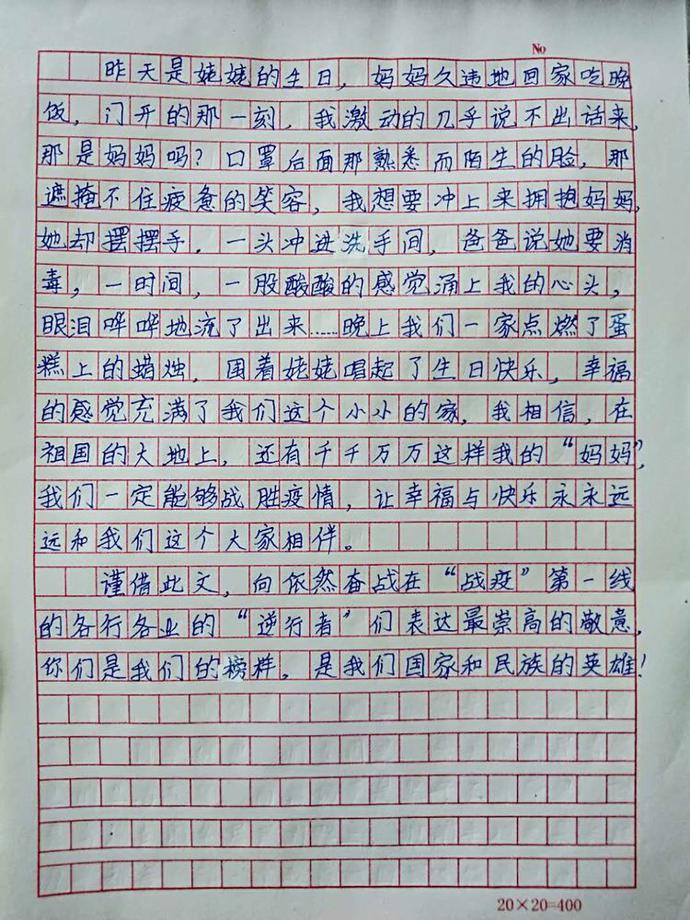 No
昨天是姥姥的生日，妈妈久违地回家吃晚
饭，门开的那一刻，我激动的几乎说不出话来，
那是妈妈吗？口罩后面那熟悉而陌生的脸，那
遮掩不住疲惫的笑容，我想要冲上来拥抱妈妈，
她却摆摆手，一头冲进洗手间，爸爸说她要消
毒，一时间，一股酸酸的感觉涌上我的心头，
眼泪哗哗地流了出来……晚上我们一家点燃了蛋
糕上的蜡烛，围着姥姥唱起了生日快乐，幸福
的感觉充满了我们这个小小的家，我相信，在
祖国的大地上，还有千千万万这样我的“妈妈”，
我们一定能够战胜疫情，让幸福与快乐永永远
远和我们这个大家相伴。
谨借此文，向依然奋战在“战疫”第一线
的各行各业的“逆行者”们表达最崇高的敬意，
你们是我们的榜样。是我们国家和民族的英雄！
20×20=400